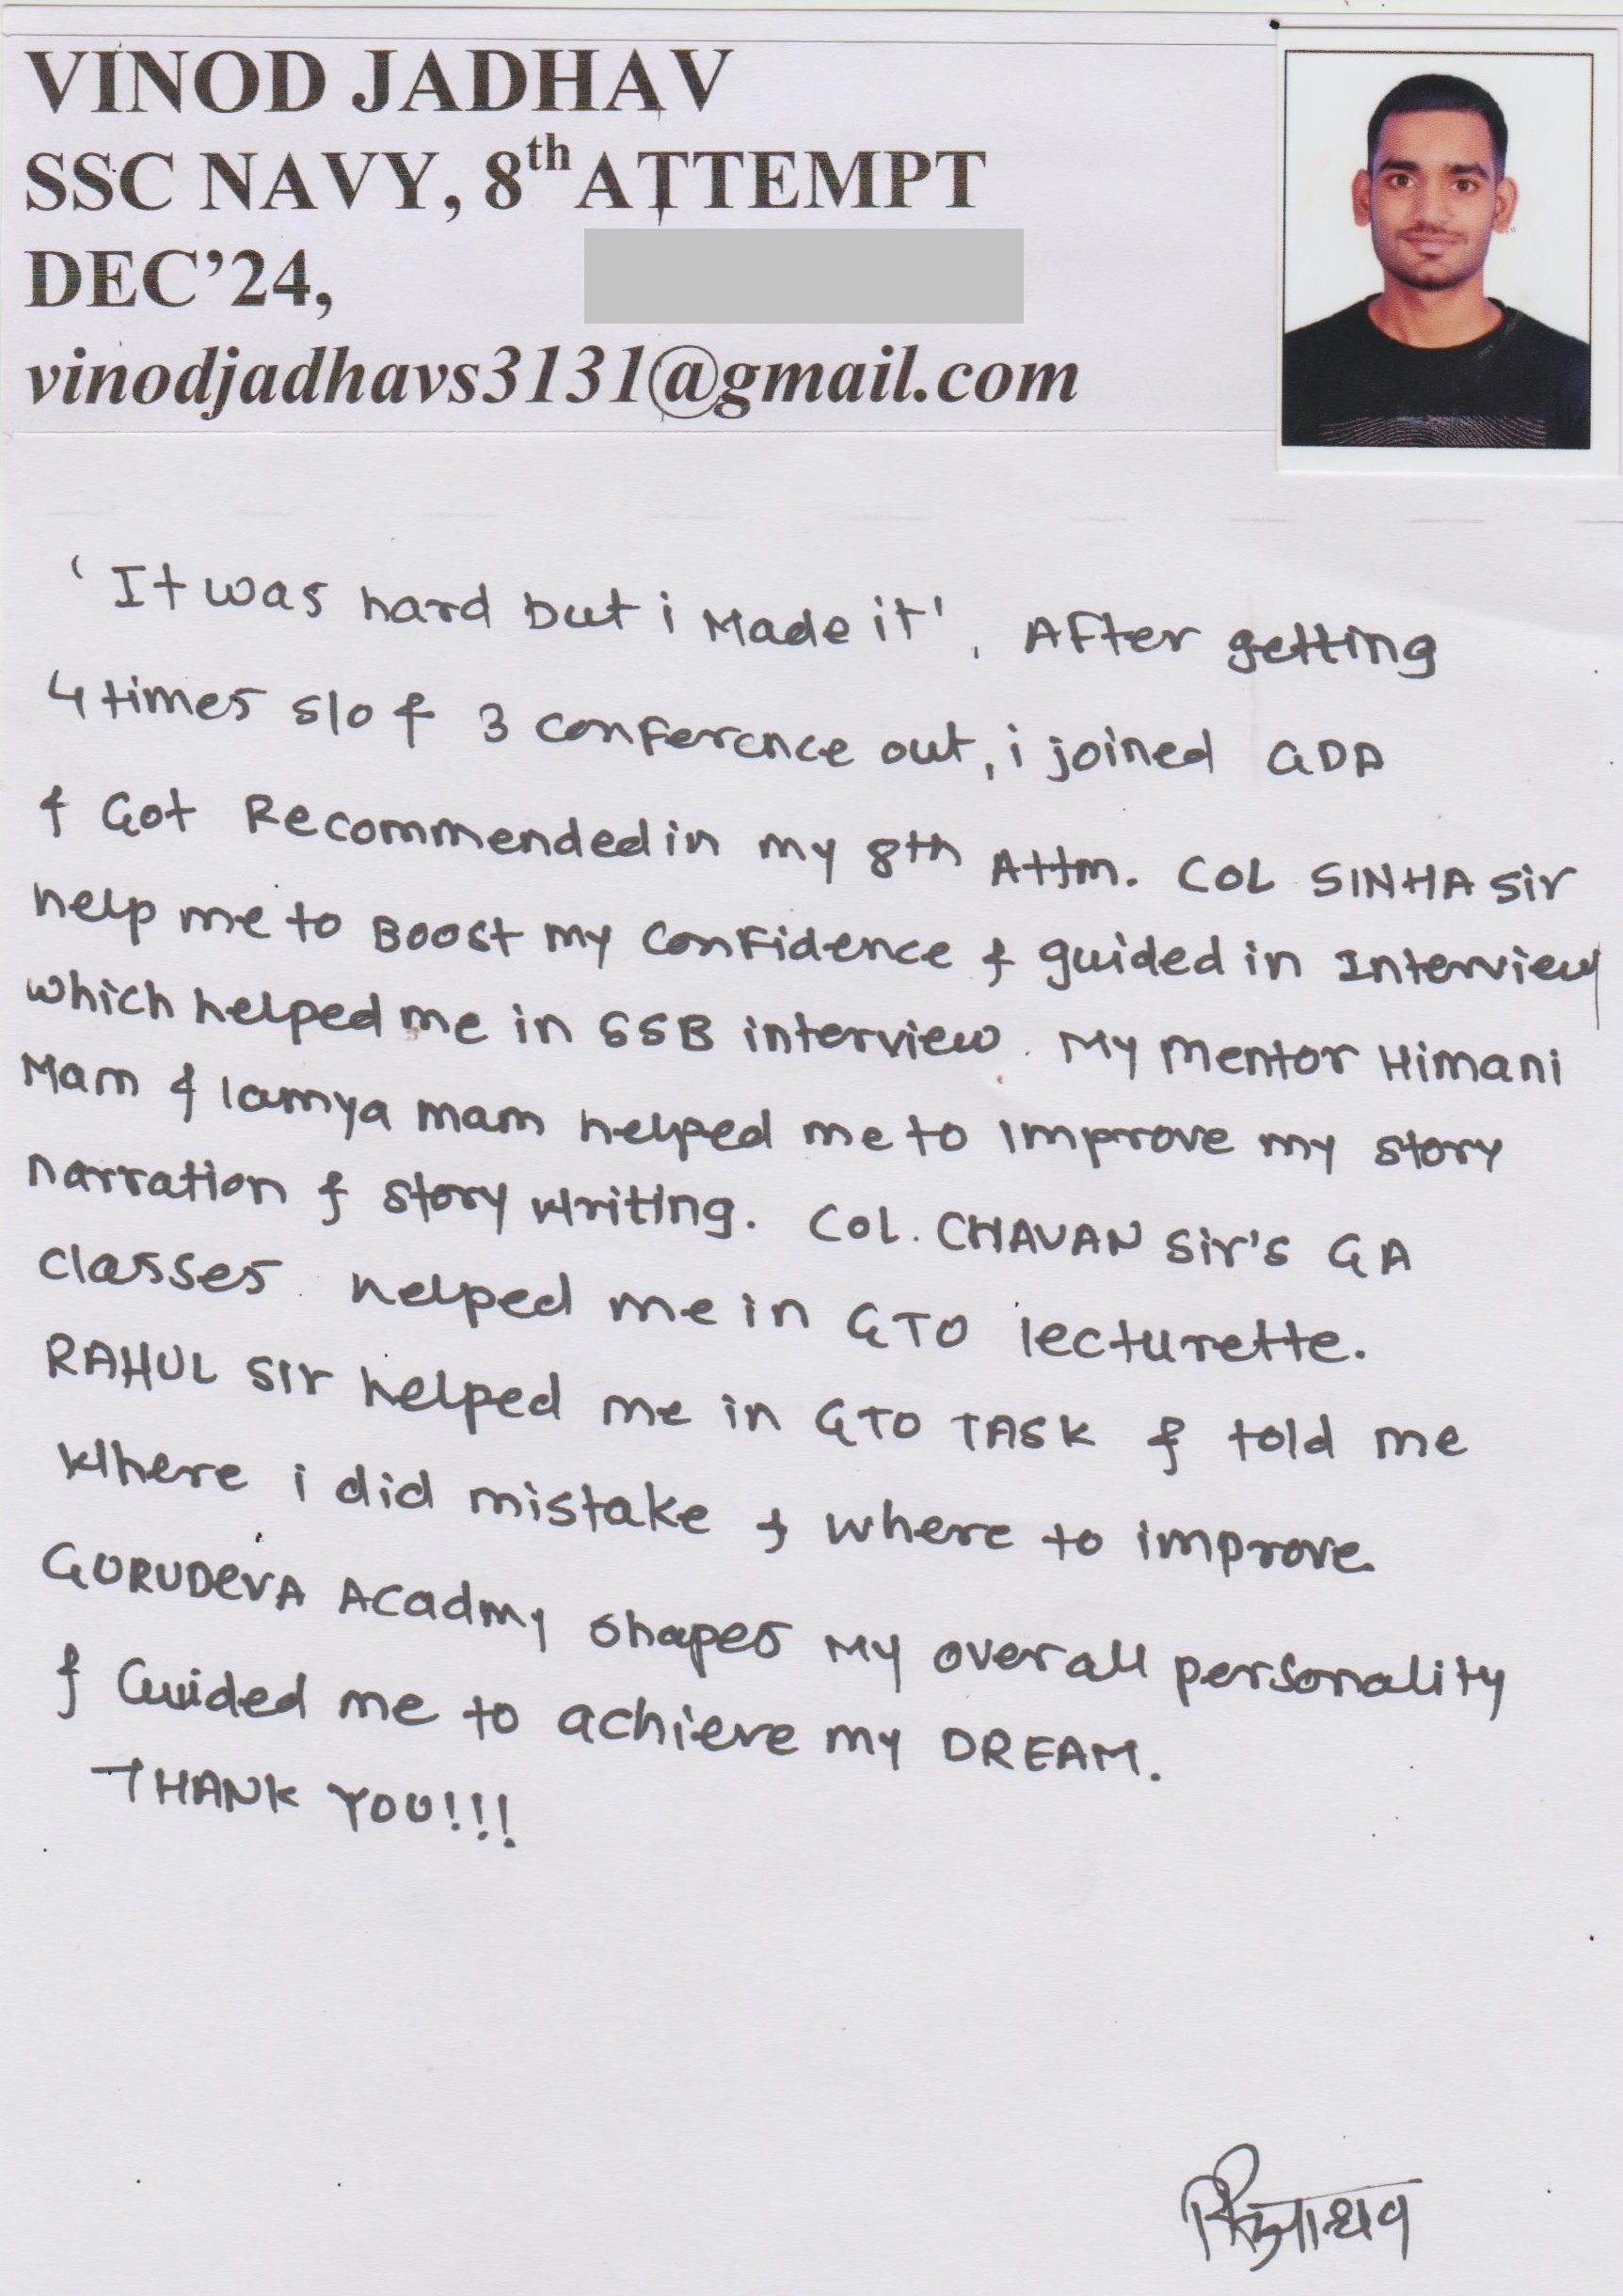 VINOD JADHAV
SSC NAVY, 8th ATTEMPT
DEC’24,
vinodjadhavs3131@gmail.com
‘It was hard but i Made it'. After getting
4 times s/o & 3 conference out, i joined GDA
& Got Recommended in my 8th Attm. COL SINHA sir
help me to Boost my confidence & guided in Interview
which helped me in SSB interview. My mentor Himani
Mam & lamya mam helped me to improve my story
narration & story writing. Col. CHAVAN sir's GA
classes helped me in GTO lecturette.
RAHUL sir helped me in GTO TASK & told me
Where i did mistake & where to improve.
GURUDeVA Acadmy shapes My overall personality
& Guided me to achieve my DREAM.
THANK YOU!!!